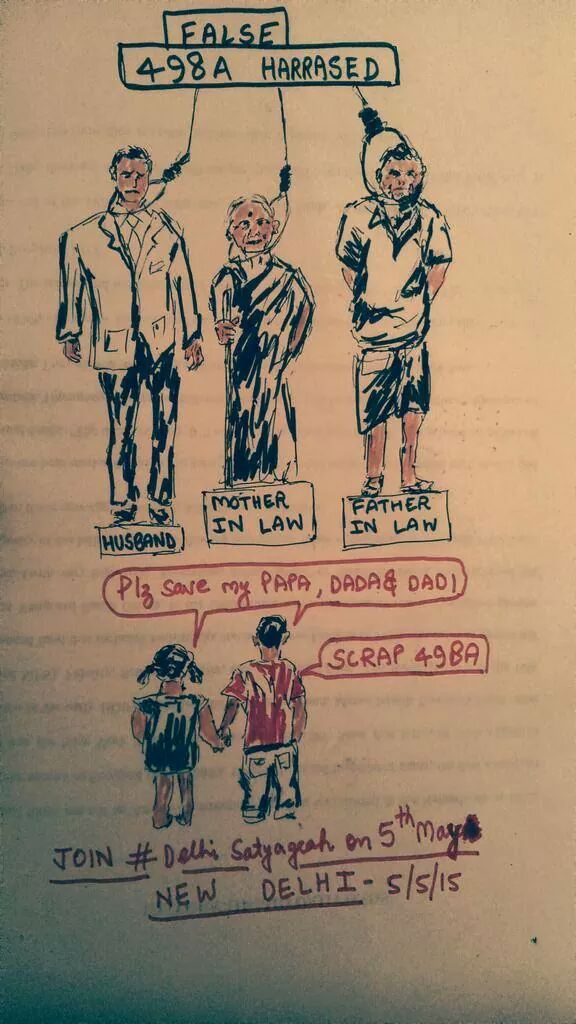 FALSE
498A HARRASED
HUSBAND
MOTHER
IN LAW
FATHER
IN LAW
Plz save my PAPA, DADA & DADI
SCRAP 498A
JOIN # Delhi Satyagrah on 5th May
NEW DELHI - 5/5/15